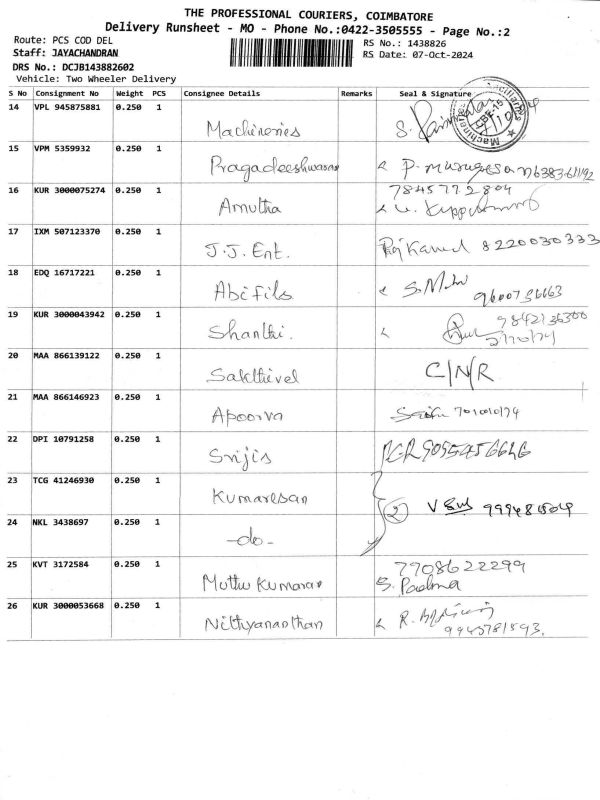 THE PROFESSIONAL COURIERS, COIMBATORE
Delivery Runsheet - MO - Phone No.:0422-3505555 - Page No.:2
Route: PCS COD DEL
RS No.: 1438826
Staff: JAYACHANDRAN
RS Date: 07-Oct-2024
DRS No.: DCJB143882602
Vehicle: Two Wheeler Delivery
S No Consignment No Weight PCS Consignee Details Remarks Seal & Signature
14 VPL 945875881 0.250 1 Machineries S.
15 VPM 5359932 0.250 1 Pragadeeshwaran P. Murugesan
16 KUR 3000075274 0.250 1 Amutha 7845772804
17 IXM 507123370 0.250 1 J.J. Ent. 8220030333
18 EDQ 16717221 0.250 1 Abi Fils 9600756663
19 KUR 3000043942 0.250 1 Shanthi. 9842136300
20 MAA 866139122 0.250 1 Sakthivel C/N/R
21 MAA 866146923 0.250 1 Apoorva
22 DPI 10791258 0.250 1 Srijis
23 TCG 41246930 0.250 1 Kumaresan
2
24 NKL 3438697 0.250 1 -do-
25 KVT 3172584 0.250 1 Muthu Kumaran 7908622299
S. Padma
26 KUR 3000053668 0.250 1 Nithyananthan R.